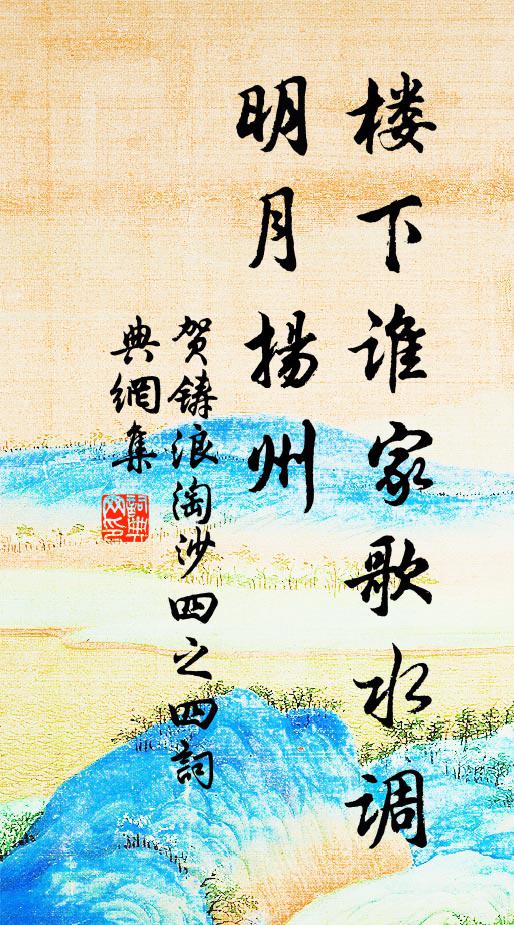 楼下谁家歌水调
明月扬州
贺铸浪淘沙四之四词
典網集